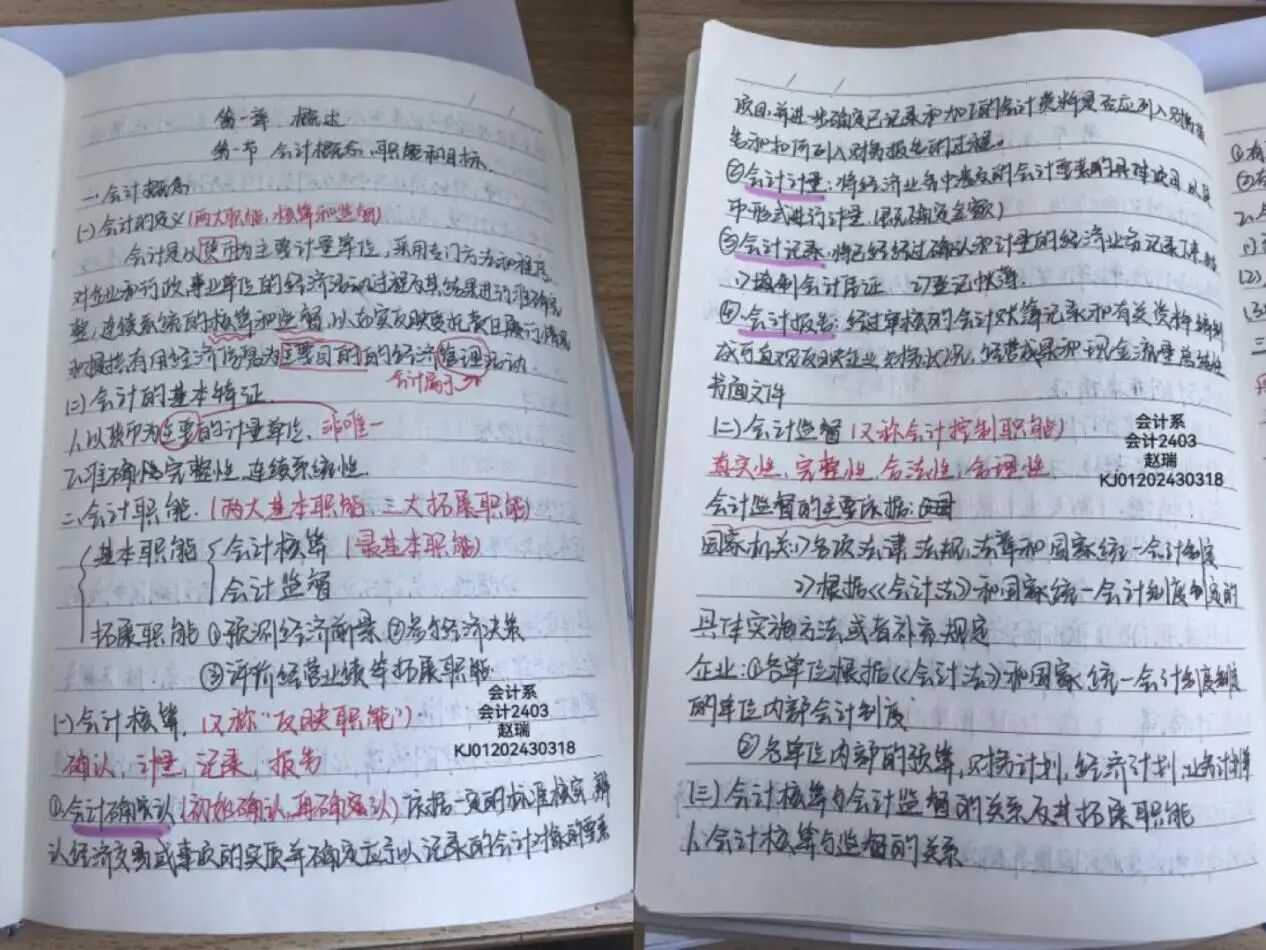 第一章 概述
第一节 会计概念、职能和目标
一.会计概念
(一)会计的定义(两大职能,核算和监督)
会计是以货币为主要计量单位,采用专门方法和程序,
对企业和行政事业单位的经济活动过程及其结果进行准确完
整,连续系统的核算和监督,以如实反映受托责任履行情况
和提供有用经济信息为主要目的的经济管理活动.
会计属于
(二)会计的基本特征.
1.以货币为主要的计量单位、非唯一
2.准确性完整性、连续系统性.
二.会计职能.(两大基本职能 三大拓展职能)
基本职能 会计核算 (最基本职能)
会计监督
拓展职能 ①预测经济前景 ②参与经济决策
③评价经营业绩等拓展职能
(一)会计核算.(又称“反映职能”)
确认,计量,记录,报告
①.会计确认(初始确认,再确认)依据一定的标准核实、辨
认经济交易或事项的实质并确定应予以记录的会计对象的要素
会计系
会计2403
赵瑞
KJ01202430318
项目,并进一步确定已记录和加工的会计资料是否应列入财务报
告和如何列入财务报告的过程。
②会计计量:将经济业务中发生的会计要素的具体项目以
中形式进行计量.(确定金额)
③会计记录,将已经经过确认和计量的经济业务记录下来.
1)填制会计凭证 2)登记帐簿.
④.会计报告:经过审核的会计账簿记录和有关资料编制
成可直观反映企业财务状况,经营成果和现金流量总结性
书面文件
(二)会计监督(又称会计控制职能)
真实性、完整性、合法性、合理性.
会计监督的主要依据:
国家机关:1)各项法律、法规、法章和国家统一会计制度
2)根据《会计法》和国家统一会计制度制定的
具体实施方法或者补充规定
企业:①各单位根据《会计法》和国家统一会计制度制定
的单位内部会计制度
②各单位内部的预算,财务计划,经济计划,业务计划等
(三)会计核算与会计监督的关系及其拓展职能
1.会计核算与监督的关系
会计系
会计2403
赵瑞
KJ01202430318